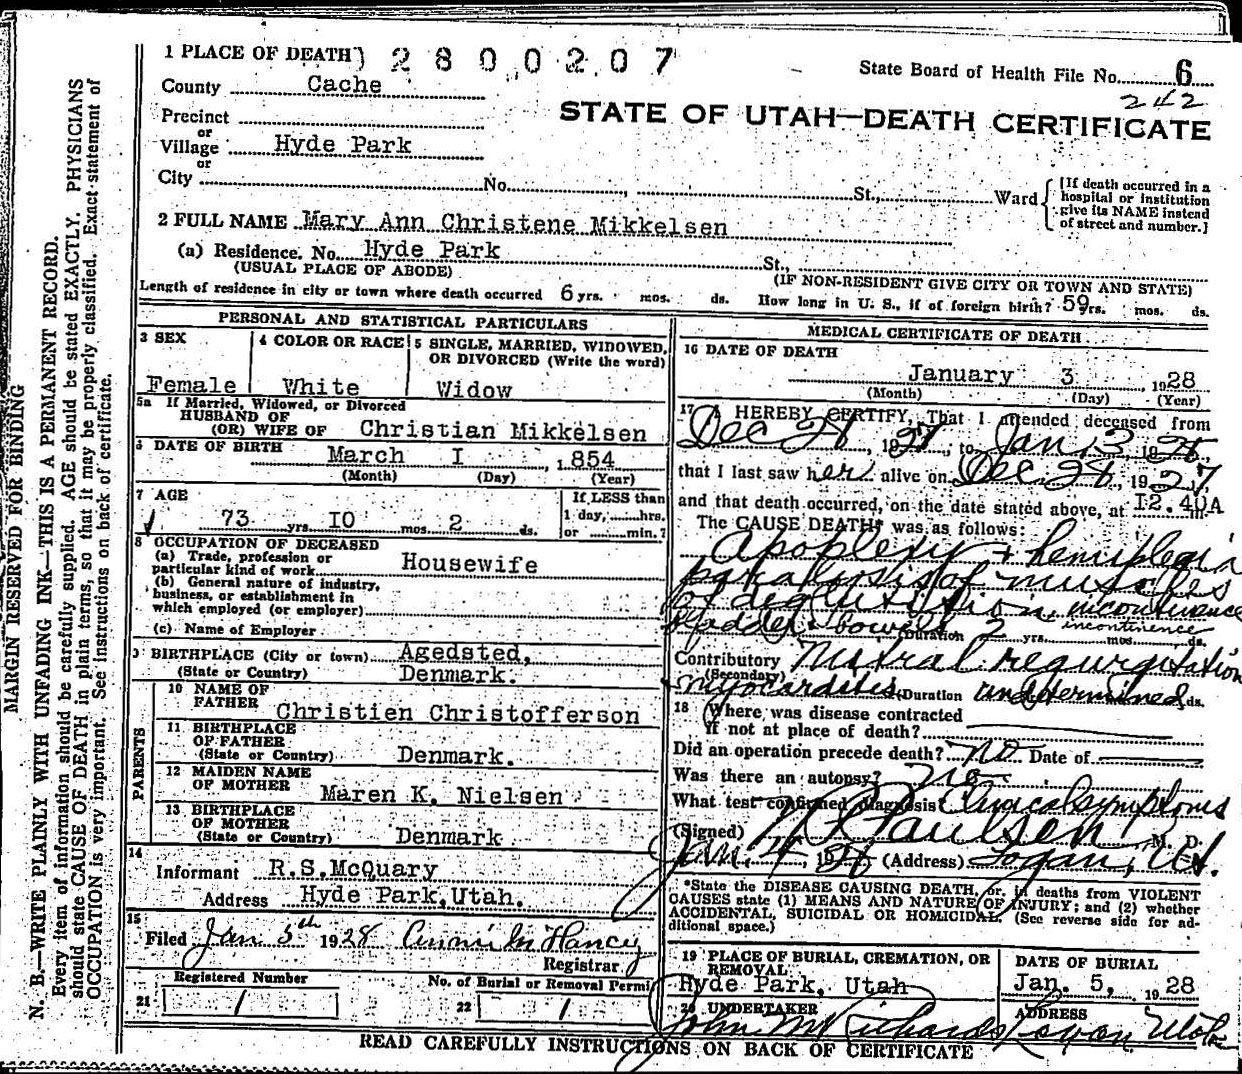 1 PLACE OF DEATH 2 8 0 0 2 0 7
State Board of Health File No. 6
242
County Cache
STATE OF UTAH—DEATH CERTIFICATE
Precinct
or
Village Hyde Park
or
City No. St., Ward
[If death occurred in a
hospital or institution
give its NAME instead
of street and number.]
2 FULL NAME Mary Ann Christene Mikkelsen
(a) Residence. No. Hyde Park St.,
(USUAL PLACE OF ABODE) (IF NON-RESIDENT GIVE CITY OR TOWN AND STATE)
Length of residence in city or town where death occurred 6 yrs. mos. ds. How long in U. S., if of foreign birth? 59 yrs. mos. ds.
PERSONAL AND STATISTICAL PARTICULARS
3 SEX
Female
4 COLOR OR RACE
White
5 SINGLE, MARRIED, WIDOWED,
OR DIVORCED (Write the word)
Widow
5a If Married, Widowed, or Divorced
HUSBAND OF
(OR) WIFE OF Christian Mikkelsen
6 DATE OF BIRTH
March I, 1854
(Month) (Day) (Year)
7 AGE
73 yrs. IO mos. 2 ds.
If LESS than
1 day, hrs.
or min.?
8 OCCUPATION OF DECEASED
(a) Trade, profession or
particular kind of work Housewife
(b) General nature of industry,
business, or establishment in
which employed (or employer)
(c) Name of Employer
9 BIRTHPLACE (City or town) Agedsted,
(State or Country) Denmark.
PARENTS
10 NAME OF
FATHER Christien Christofferson
11 BIRTHPLACE
OF FATHER
(State or Country) Denmark.
12 MAIDEN NAME
OF MOTHER Maren K. Nielsen
13 BIRTHPLACE
OF MOTHER
(State or Country) Denmark
14
Informant R.S.McQuary
Address Hyde Park, Utah.
15
Filed Jan 5th 1928
Registrar
Registered Number
21 1
No. of Burial or Removal Permit
22 1
MEDICAL CERTIFICATE OF DEATH
16 DATE OF DEATH
January 3, 1928
(Month) (Day) (Year)
17 I HEREBY CERTIFY, That I attended deceased from
Dec 28, 1927, to Jan. 3, 1928,
that I last saw her alive on Dec. 28, 1927,
and that death occurred, on the date stated above, at I2.40A m.
The CAUSE DEATH* was as follows:
Apoplexy + hemiplegia
paralysis of muscles
of deglutition, incontinence
bladder + bowels incontinence
Duration 2 yrs. mos. ds.
Contributory Mitral regurgitation
(Secondary)
Myocarditis Duration undetermined ds.
18 Where was disease contracted
if not at place of death?
Did an operation precede death? No Date of
Was there an autopsy? No
What test confirmed diagnosis? Clinical symptoms
(Signed) Paulsen M. D.
Jan. 4, 1928 (Address) Logan, Ut.
*State the DISEASE CAUSING DEATH, or, in deaths from VIOLENT
CAUSES state (1) MEANS AND NATURE OF INJURY; and (2) whether
ACCIDENTAL, SUICIDAL OR HOMICIDAL. (See reverse side for ad-
ditional space.)
19 PLACE OF BURIAL, CREMATION, OR
REMOVAL
Hyde Park, Utah
DATE OF BURIAL
Jan. 5, 1928
20 UNDERTAKER
John M Richards
ADDRESS
Logan Utah
READ CAREFULLY INSTRUCTIONS ON BACK OF CERTIFICATE
MARGIN RESERVED FOR BINDING
N. B.—WRITE PLAINLY WITH UNFADING INK—THIS IS A PERMANENT RECORD.
Every item of information should be carefully supplied. AGE should be stated EXACTLY. PHYSICIANS
should state CAUSE OF DEATH in plain terms, so that it may be properly classified. Exact statement of
OCCUPATION is very important. See instructions on back of certificate.